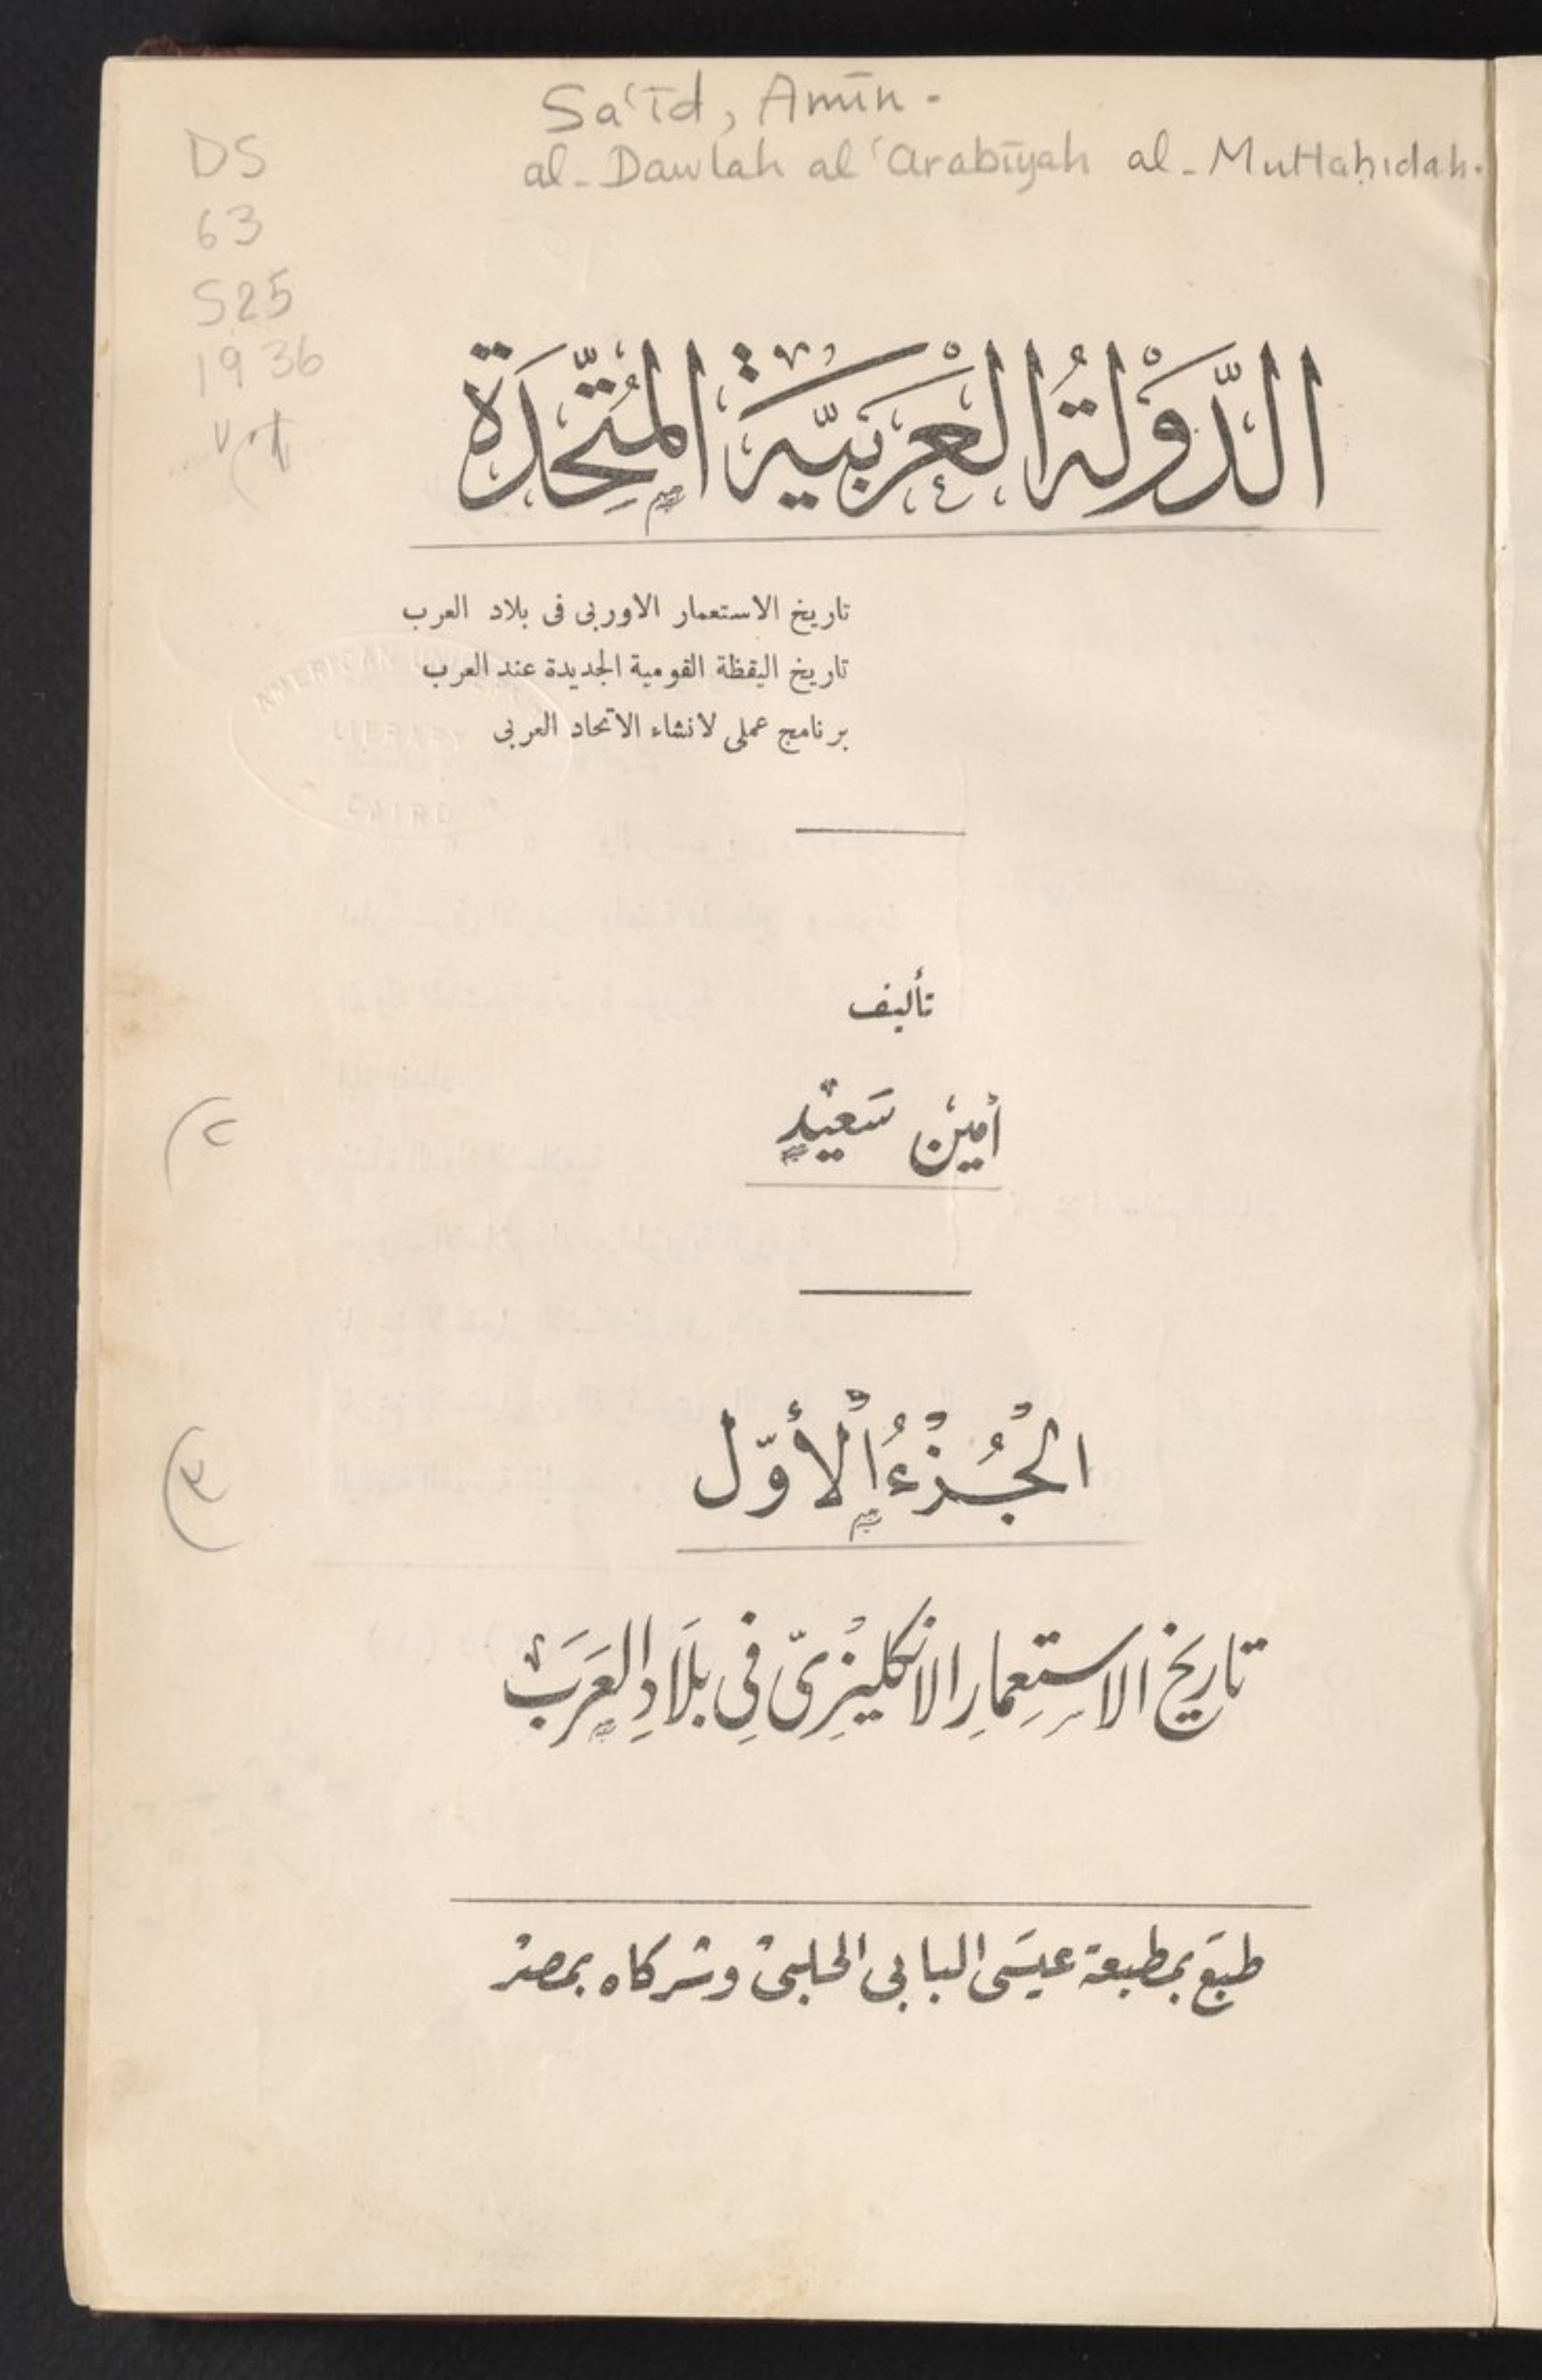 Sa'īd, Amīn -
al-Dawlah al 'arabīyah al-Muttaḥidah.
DS
63
S25
1936
الدَّوْلَةُ الْعَرَبِيَّةُ الْمُتَّحِدَةُ
تاريخ الاستعمار الاوربى فى بلاد العرب
تاريخ اليقظة القومية الجديدة عند العرب
برنامج عملى لانشاء الاتحاد العربى
AMERICAN
LIBRARY
CAIRO
تأليف
أمين سَعيْد
٢
٣
الْجُزْءُ الْأَوّل
تاريخ الاستِعمارِ الانكليزىّ فِى بلَادِ العَرَبْ
طبَع بمطبعة عيسَى البابى الحلبى وشركاه بمصر